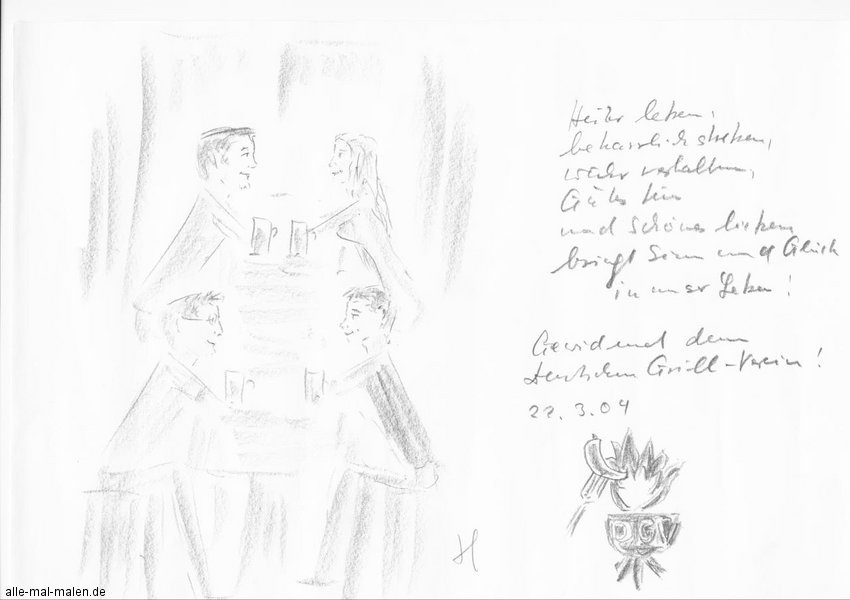 Heiter leben,
beharrlich streben,
Gutes tun
und Schönes lieben
bringt Sinn und Glück
in unser Leben!
Gewidmet dem
deutschen Grill-Verein!
22.3.04
DGV
H
alle-mal-malen.de